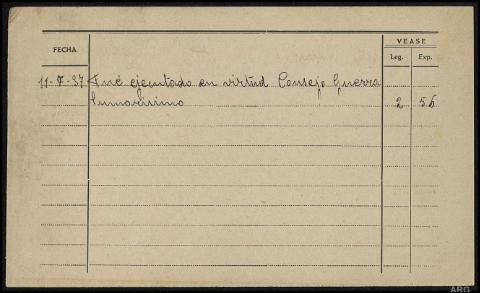 VEASE
FECHA Leg. Exp.
11-7-37 Fué ejecutado en virtud Consejo Guerra
Sumarísimo 2 56
ARG